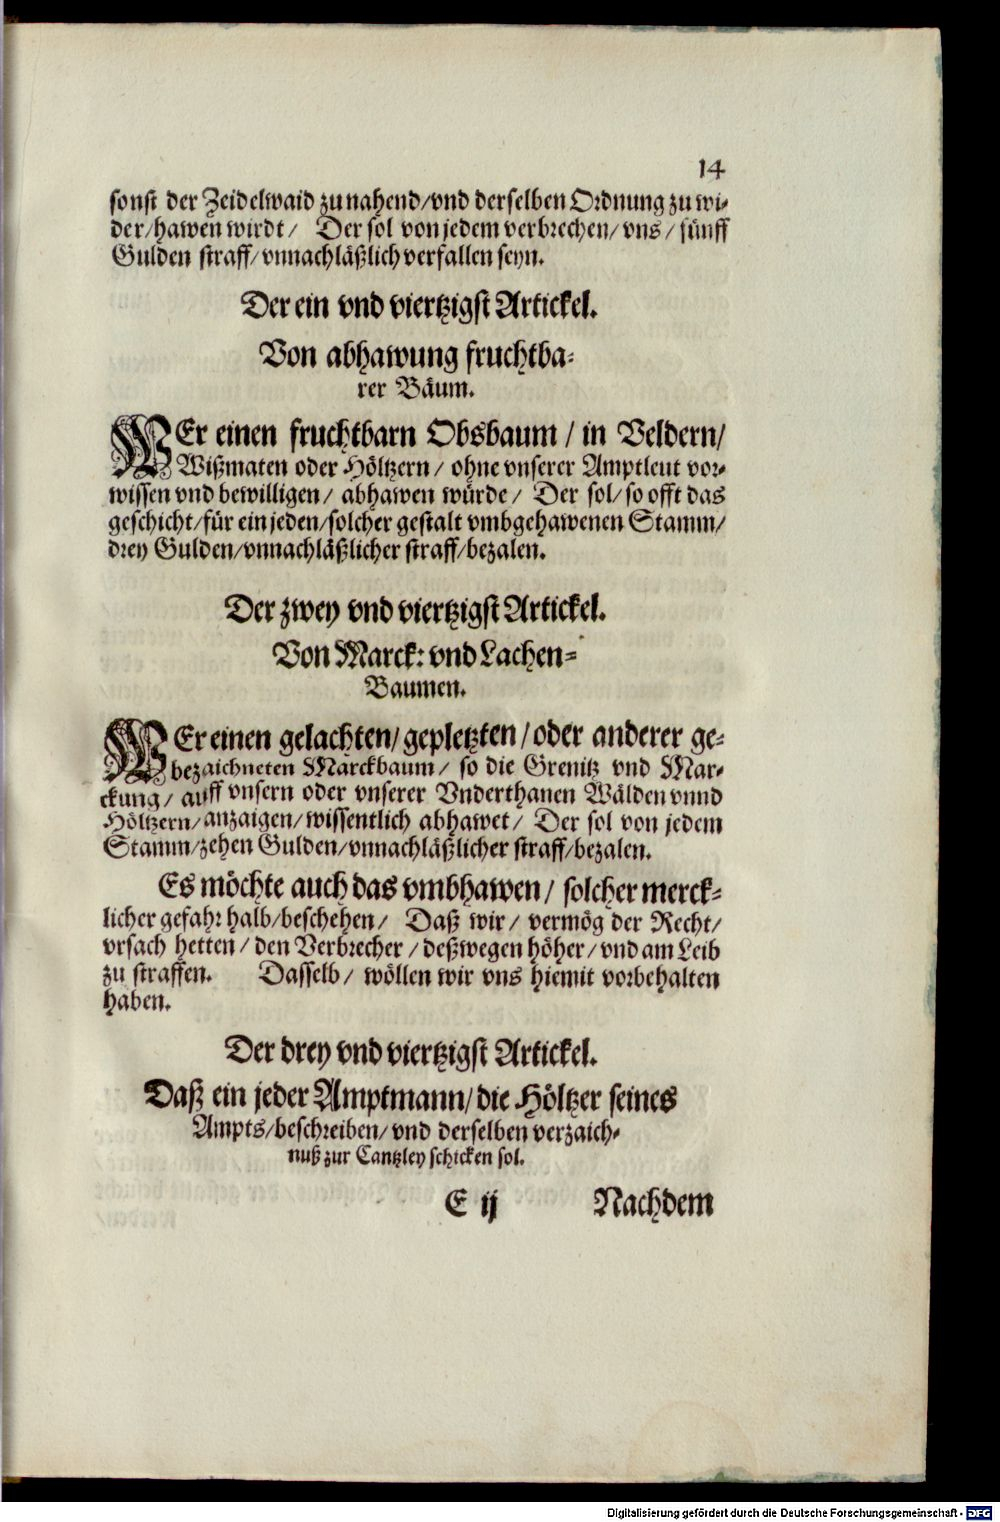 14
sonst der Zeidelwaid zu nahend/vnd derselben Ordnung zu wi-
der/hawen wirdt/ Der sol von jedem verbrechen/vns/fünff
Gulden straff/vnnachläßlich verfallen seyn.
Der ein vnd viertzigst Artickel.
Von abhawung fruchtba-
rer Bäum.
WEr einen fruchtbarn Obsbaum/in Veldern/
Wißmaten oder Höltzern/ohne vnserer Amptleut vor-
wissen vnd bewilligen/abhawen würde/ Der sol/so offt das
geschicht/für ein jeden/solcher gestalt vmbgehawenen Stamm/
drey Gulden/vnnachläßlicher straff/bezalen.
Der zwey vnd viertzigst Artickel.
Von Marck: vnd Lachen-
Baumen.
WEr einen gelachten/gepletzten/oder anderer ge-
bezaichneten Marckbaum/so die Grenitz vnd Mar-
ckung/auff vnsern oder vnserer Vnderthanen Wälden vnnd
Höltzern/anzaigen/wissentlich abhawet/ Der sol von jedem
Stamm/zehen Gulden/vnnachläßlicher straff/bezalen.
Es möchte auch das vmbhawen/solcher merck-
licher gefahr halb/beschehen/ Daß wir/vermög der Recht/
vrsach hetten/den Verbrecher/deßwegen höher/vnd am Leib
zu straffen. Dasselb/wöllen wir vns hiemit vorbehalten
haben.
Der drey vnd viertzigst Artickel.
Daß ein jeder Amptmann/die Höltzer seines
Ampts/beschreiben/vnd derselben verzaich-
nuß zur Cantzley schicken sol.
E ij Nachdem
Digitalisierung gefördert durch die Deutsche Forschungsgemeinschaft - DFG